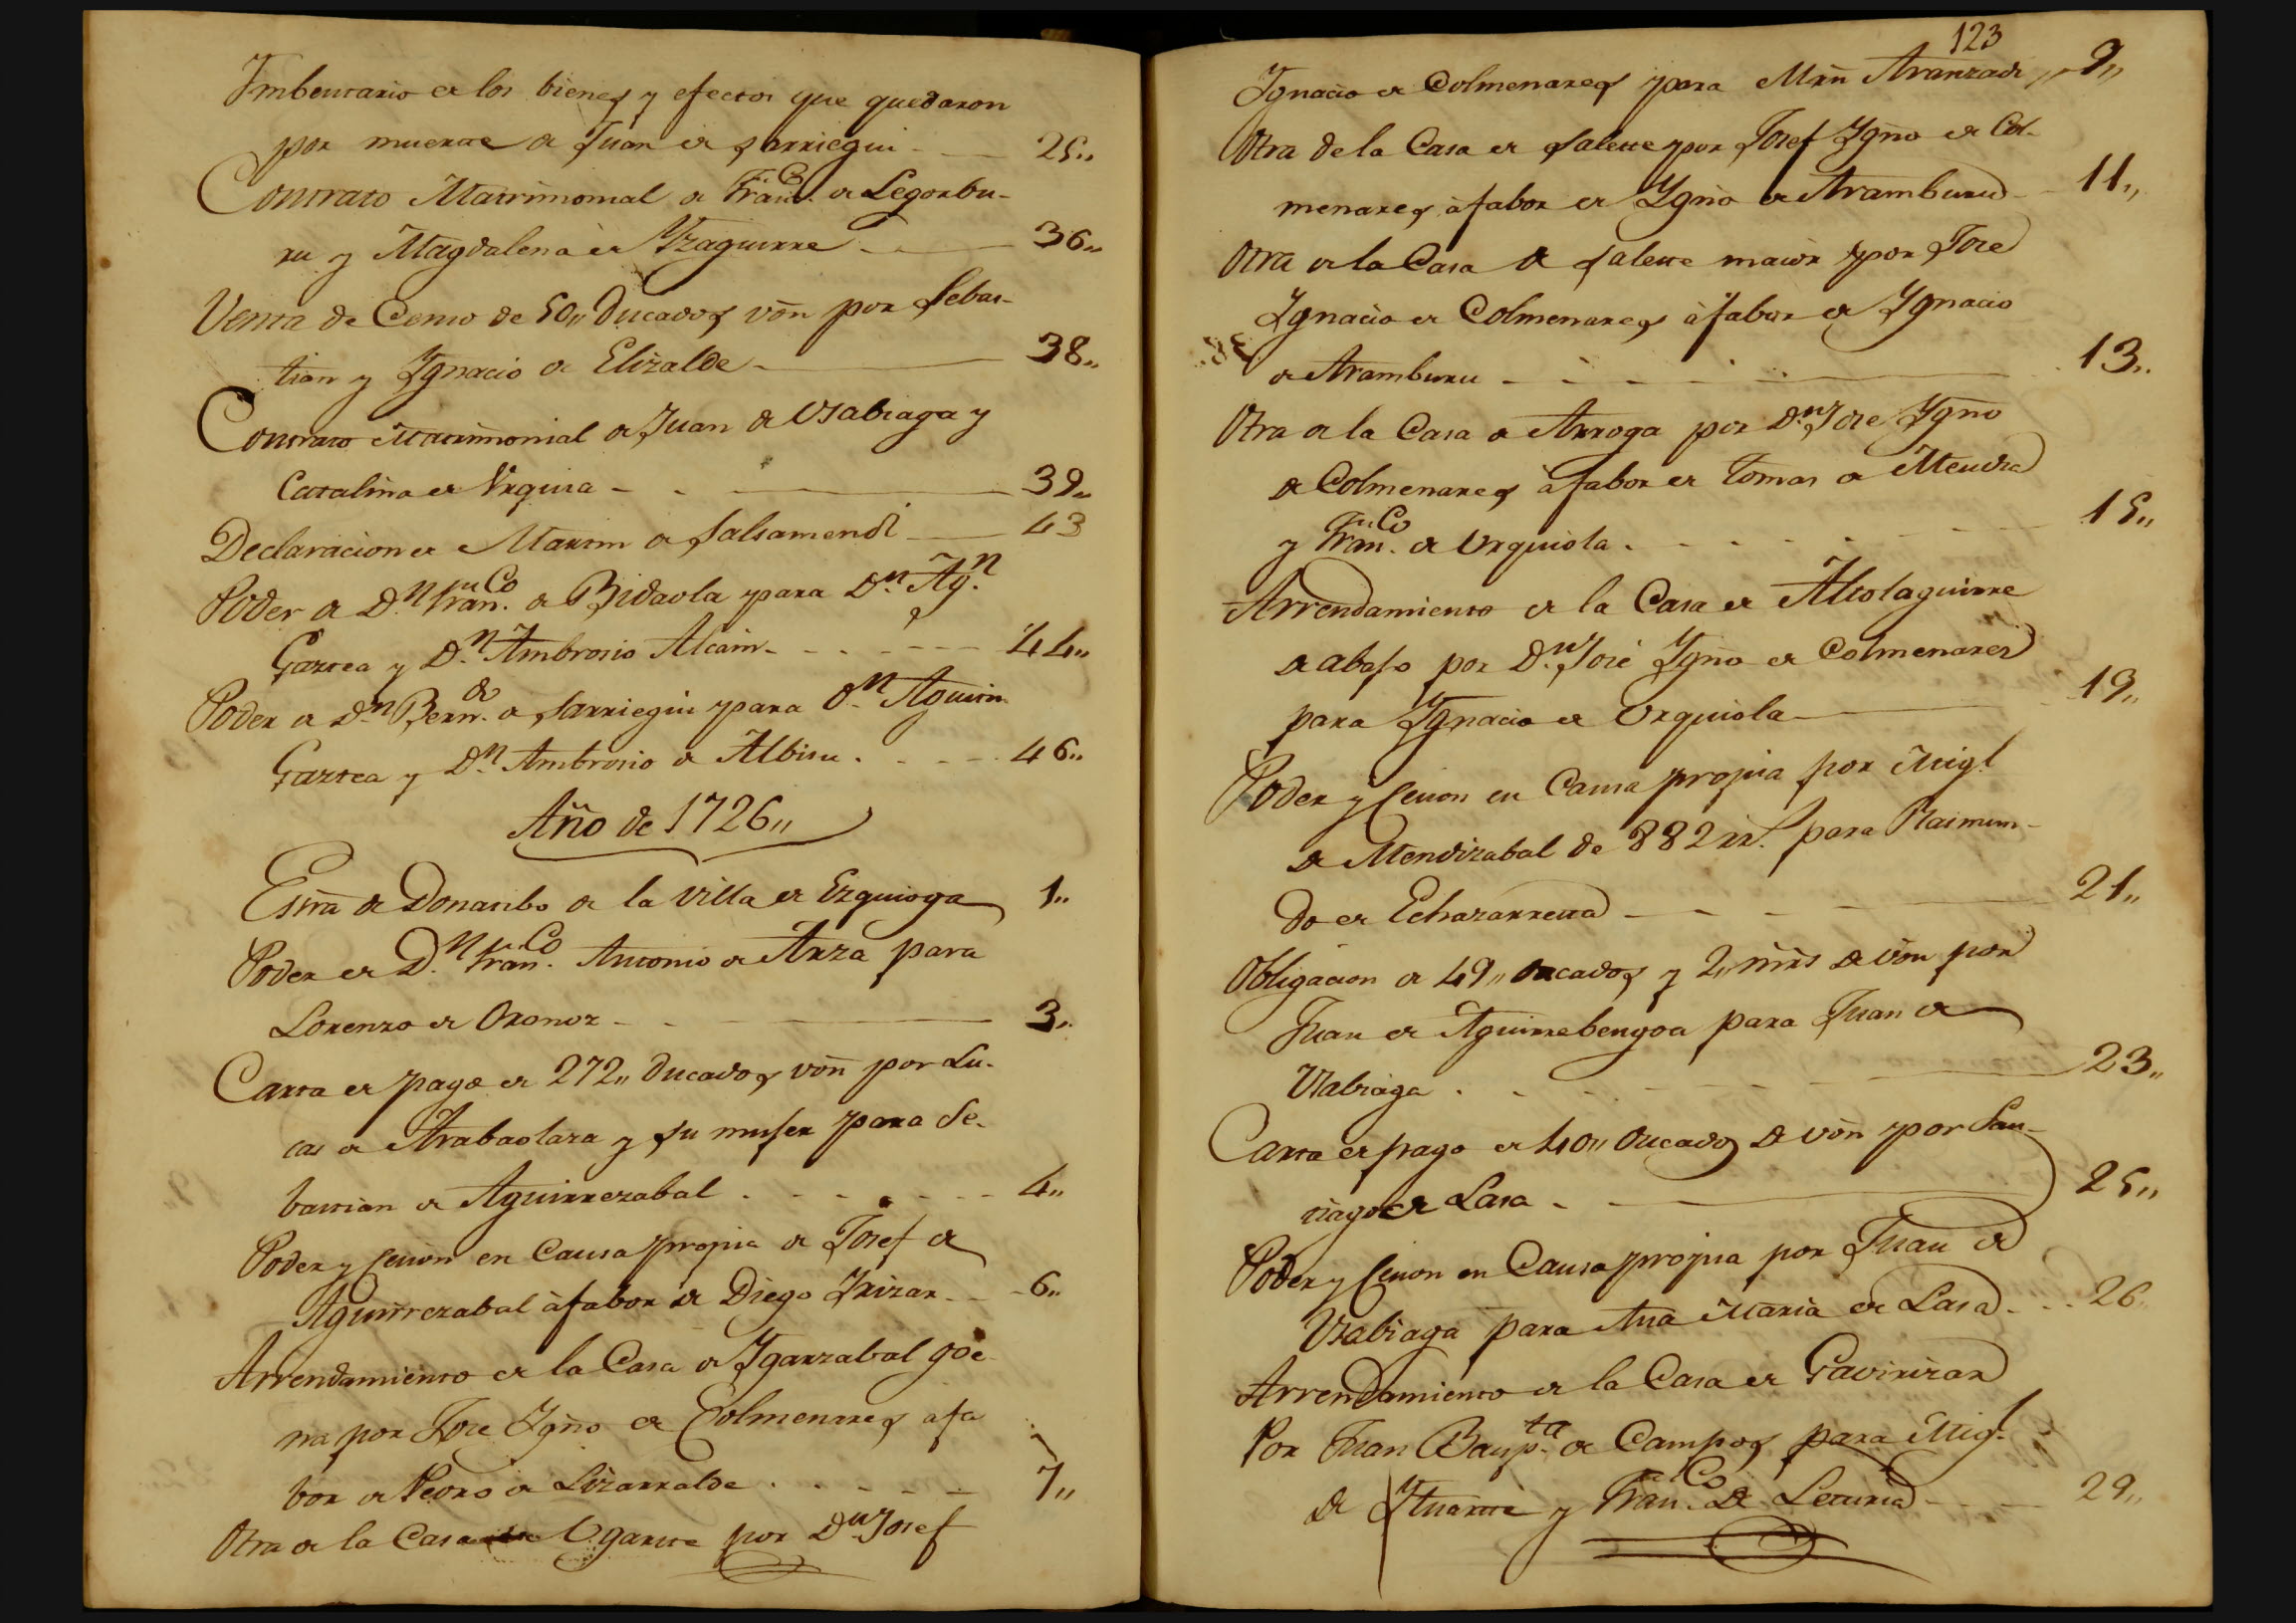 Imbentario de los bienes y efectos que quedaron
por muerte de Juan de Sarriegui - 25,,
Contrato Matrimonial de Fran.co de Legorbu-
ru y Magdalena de Yzaguirre - 36,,
Venta de Censo de 50,, Ducados von por Sebas-
tian y Ygnacio de Elizalde - 38,,
Contrato Matrimonial de Juan de Usabiaga y
Catalina de Urquia - 39,,
Declaracion de Martin de Salsamendi 43
Poder de D.n Fran.co de Bidaola para D.n Ag.n
Gaztea y D.n Ambrosio Alcain - 44,,
Poder de D.n Bern.do de Sarriegui para D.n Agustin
Gaztea y D.n Ambrosio de Albisu . 46,,
Año de 1726,,
Esrra de Donatibo de la Villa de Ezquioga 1,,
Poder de D.n Fran.co Antonio de Arza para
Lorenzo de Oronoz - 3,,
Carta de pago de 272,, Ducados von por Lu-
cas de Arabaolaza y su muger para Se-
bastian de Aguirrezabal . 4,,
Poder y Cesion en Causa propia de Josef de
Aguirrezabal à fabor de Diego Yrizar - 6,,
Arrendamiento de la Casa de Ygarzabal goe-
na por Jose Ygno de Colmenares a fa
bor de Pedro de Lizarralde . 7,,
Otra de la Casa de Ugarte por D.n Josef
123
Ygnacio de Colmenares para Mrn Aranzadi 9,,
Otra de la Casa de Salete por Josef Ygno de Col-
menares à fabor de Ygno de Aramburu - 11,,
Otra de la Casa de Salete maior por Jose
Ygnacio de Colmenares à fabor de Ygnacio
de Aramburu - 13,,
Otra de la Casa de Arroga por D.n Jose Ygno
de Colmenares à fabor de Tomas de Mendia
y Fran.co de Urquiola . 15,,
Arrendamiento de la Casa de Altolaguirre
de abajo por D.n José Ygno de Colmenares
para Ygnacio de Urquiola - 19,,
Poder y Cesion en Causa propia por Migl
de Mendizabal de 882 rr.s para Raimun-
do de Echazarreta - 21,,
Obligacion de 49,, Ducados y 2,, mrs de von por
Juan de Aguirrebengoa para Juan de
Usabiaga . 23,,
Carta de pago de 40,, Ducados de von por San-
tiago de Lasa - 25,,
Poder y Cesion en Causa propia por Juan de
Usabiaga para Ana Maria de Lasa - 26,,
Arrendamiento de la Casa de Gavirizar
Por Juan Baup.ta de Campos para Mig.l
de Ytuarte y Fran.co de Leturia - 29,,